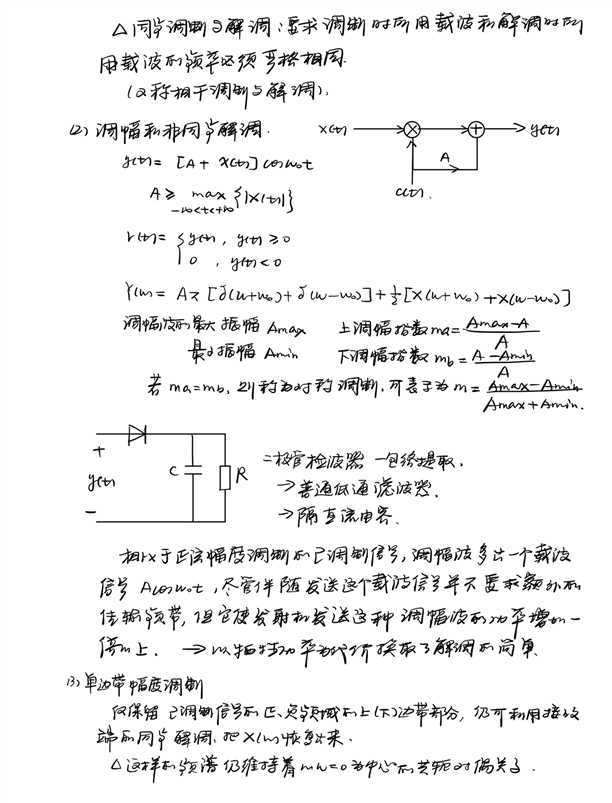 △同步调制与解调：要求调制时所用载波和解调时所
用载波的频率必须严格相同.
(又称相干调制与解调).
(2) 调幅和非同步解调.
x(t) y(t)
A
c(t).
y(t) = [A + x(t)] cosω₀t
A ≥ max {|x(t)|}
-∞<t<+∞
r(t) = { y(t) , y(t) ≥ 0
0 , y(t) < 0
Y(ω) = Aπ [δ(ω+ω₀) + δ(ω-ω₀)] + ½ [X(ω+ω₀) + X(ω-ω₀)]
调幅波的最大振幅 Amax 上调幅指数 ma = (Amax-A)/A
最小振幅 Amin 下调幅指数 mb = (A-Amin)/A
若 ma=mb, 则称为对称调制, 可表示为 m = (Amax-Amin)/(Amax+Amin).
+
y(t)
-
C
R
二极管检波器 — 包络提取.
→普通低通滤波器.
→隔直流电容.
相比于正弦幅度调制的已调制信号, 调幅波多出一个载波
信号 Acosω₀t , 尽管伴随发送这个载波信号并不要求额外的
传输频带, 但它使发射机发送这种调幅波的功率增加一
倍以上. → 以牺牲功率为代价换取了解调的简单
(3) 单边带幅度调制
仅保留已调制信号的正、负频域的上(下)边带部分, 仍可利用接收
端的同步解调, 把 X(ω) 恢复出来.
△这样的频谱仍维持着以 ω=0 为中心的共轭对偶关系.